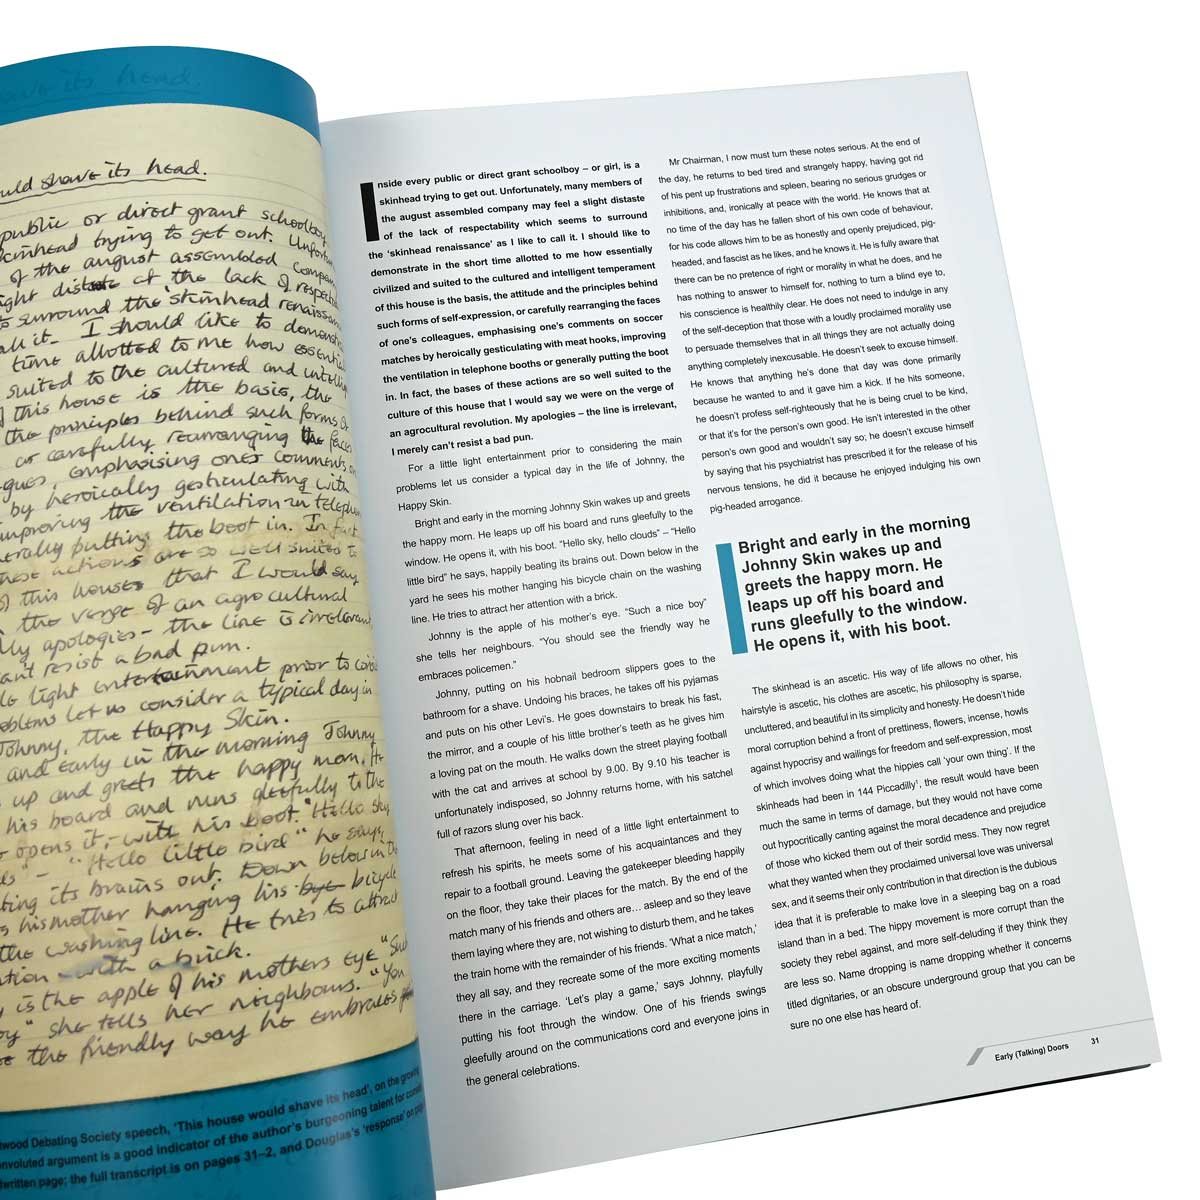 uld shave its head.
public or direct grant schoolboy
skinhead trying to get out. Unfortu
of the august assembled company
ight distaste at the lack of respecta
to surround the 'skinhead renaissan
all it. I should like to demonst
time allotted to me how essenti
suited to the cultured and intellig
f this house is the basis, the
the principles behind such forms of
or carefully rearranging the faces
gues, emphasising one's comments, on
by heroically gesticulating with
improving the ventilation in telepho
erally putting the boot in. In fact
these actions are so well suited to
of this house that I would say
the verge of an agrocultural
My apologies – the line is irrelevant
an't resist a bad pun.
le light entertainment prior to consid
roblems let us consider a typical day in
Johnny, the Happy Skin.
and early in the morning Johnny
up and greets the happy morn. He
his board and runs gleefully to the
opens it, – with his boot. "Hello sky,
ds" – "Hello little bird" he says,
ting its brains out. Down below in the
s his mother hanging his bicycle
the washing line. He tries to attract
ntion – with a brick.
y is the apple of his mothers eye "Such
oy" she tells her neighbours. "You
ee the friendly way he embraces
twood Debating Society speech, 'This house would shave its head', on the growing
nvoluted argument is a good indicator of the author's burgeoning talent for comed
dwritten page; the full transcript is on pages 31–2, and Douglas's 'response' on page
Inside every public or direct grant schoolboy – or girl, is a
skinhead trying to get out. Unfortunately, many members of
the august assembled company may feel a slight distaste
of the lack of respectability which seems to surround
the 'skinhead renaissance' as I like to call it. I should like to
demonstrate in the short time allotted to me how essentially
civilized and suited to the cultured and intelligent temperament
of this house is the basis, the attitude and the principles behind
such forms of self-expression, or carefully rearranging the faces
of one's colleagues, emphasising one's comments on soccer
matches by heroically gesticulating with meat hooks, improving
the ventilation in telephone booths or generally putting the boot
in. In fact, the bases of these actions are so well suited to the
culture of this house that I would say we were on the verge of
an agrocultural revolution. My apologies – the line is irrelevant,
I merely can't resist a bad pun.
For a little light entertainment prior to considering the main
problems let us consider a typical day in the life of Johnny, the
Happy Skin.
Bright and early in the morning Johnny Skin wakes up and greets
the happy morn. He leaps up off his board and runs gleefully to the
window. He opens it, with his boot. "Hello sky, hello clouds" – "Hello
little bird" he says, happily beating its brains out. Down below in the
yard he sees his mother hanging his bicycle chain on the washing
line. He tries to attract her attention with a brick.
Johnny is the apple of his mother's eye. "Such a nice boy"
she tells her neighbours. "You should see the friendly way he
embraces policemen."
Johnny, putting on his hobnail bedroom slippers goes to the
bathroom for a shave. Undoing his braces, he takes off his pyjamas
and puts on his other Levi's. He goes downstairs to break his fast,
the mirror, and a couple of his little brother's teeth as he gives him
a loving pat on the mouth. He walks down the street playing football
with the cat and arrives at school by 9.00. By 9.10 his teacher is
unfortunately indisposed, so Johnny returns home, with his satchel
full of razors slung over his back.
That afternoon, feeling in need of a little light entertainment to
refresh his spirits, he meets some of his acquaintances and they
repair to a football ground. Leaving the gatekeeper bleeding happily
on the floor, they take their places for the match. By the end of the
match many of his friends and others are… asleep and so they leave
them laying where they are, not wishing to disturb them, and he takes
the train home with the remainder of his friends. 'What a nice match,'
they all say, and they recreate some of the more exciting moments
there in the carriage. 'Let's play a game,' says Johnny, playfully
putting his foot through the window. One of his friends swings
gleefully around on the communications cord and everyone joins in
the general celebrations.
Mr Chairman, I now must turn these notes serious. At the end of
the day, he returns to bed tired and strangely happy, having got rid
of his pent up frustrations and spleen, bearing no serious grudges or
inhibitions, and, ironically at peace with the world. He knows that at
no time of the day has he fallen short of his own code of behaviour,
for his code allows him to be as honestly and openly prejudiced, pig-
headed, and fascist as he likes, and he knows it. He is fully aware that
there can be no pretence of right or morality in what he does, and he
has nothing to answer to himself for, nothing to turn a blind eye to,
his conscience is healthily clear. He does not need to indulge in any
of the self-deception that those with a loudly proclaimed morality use
to persuade themselves that in all things they are not actually doing
anything completely inexcusable. He doesn't seek to excuse himself.
He knows that anything he's done that day was done primarily
because he wanted to and it gave him a kick. If he hits someone,
he doesn't profess self-righteously that he is being cruel to be kind,
or that it's for the person's own good. He isn't interested in the other
person's own good and wouldn't say so; he doesn't excuse himself
by saying that his psychiatrist has prescribed it for the release of his
nervous tensions, he did it because he enjoyed indulging his own
pig-headed arrogance.
Bright and early in the morning
Johnny Skin wakes up and
greets the happy morn. He
leaps up off his board and
runs gleefully to the window.
He opens it, with his boot.
The skinhead is an ascetic. His way of life allows no other, his
hairstyle is ascetic, his clothes are ascetic, his philosophy is sparse,
uncluttered, and beautiful in its simplicity and honesty. He doesn't hide
moral corruption behind a front of prettiness, flowers, incense, howls
against hypocrisy and wailings for freedom and self-expression, most
of which involves doing what the hippies call 'your own thing'. If the
skinheads had been in 144 Piccadilly¹, the result would have been
much the same in terms of damage, but they would not have come
out hypocritically canting against the moral decadence and prejudice
of those who kicked them out of their sordid mess. They now regret
what they wanted when they proclaimed universal love was universal
sex, and it seems their only contribution in that direction is the dubious
idea that it is preferable to make love in a sleeping bag on a road
island than in a bed. The hippy movement is more corrupt than the
society they rebel against, and more self-deluding if they think they
are less so. Name dropping is name dropping whether it concerns
titled dignitaries, or an obscure underground group that you can be
sure no one else has heard of.
Early (Talking) Doors 31